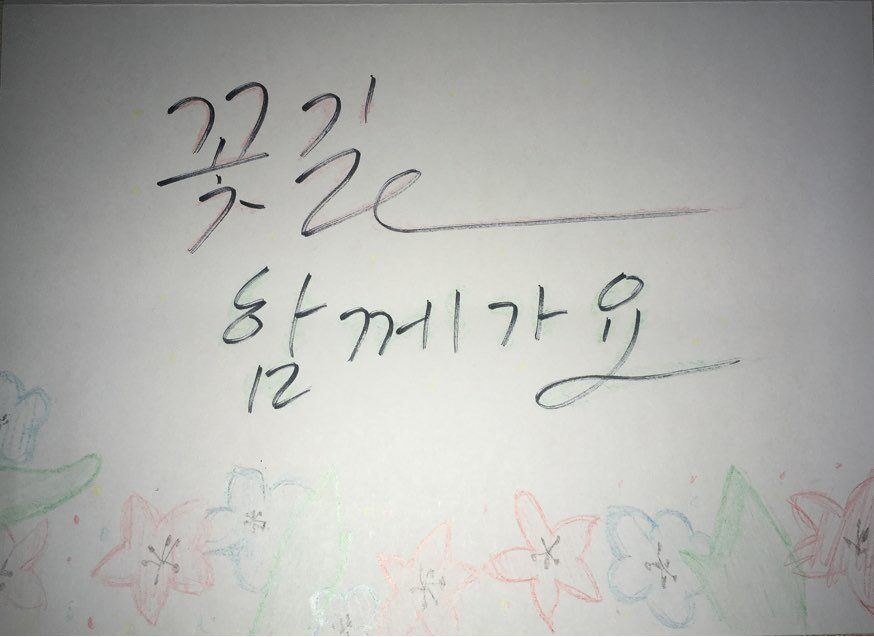 꽃길
함께가요